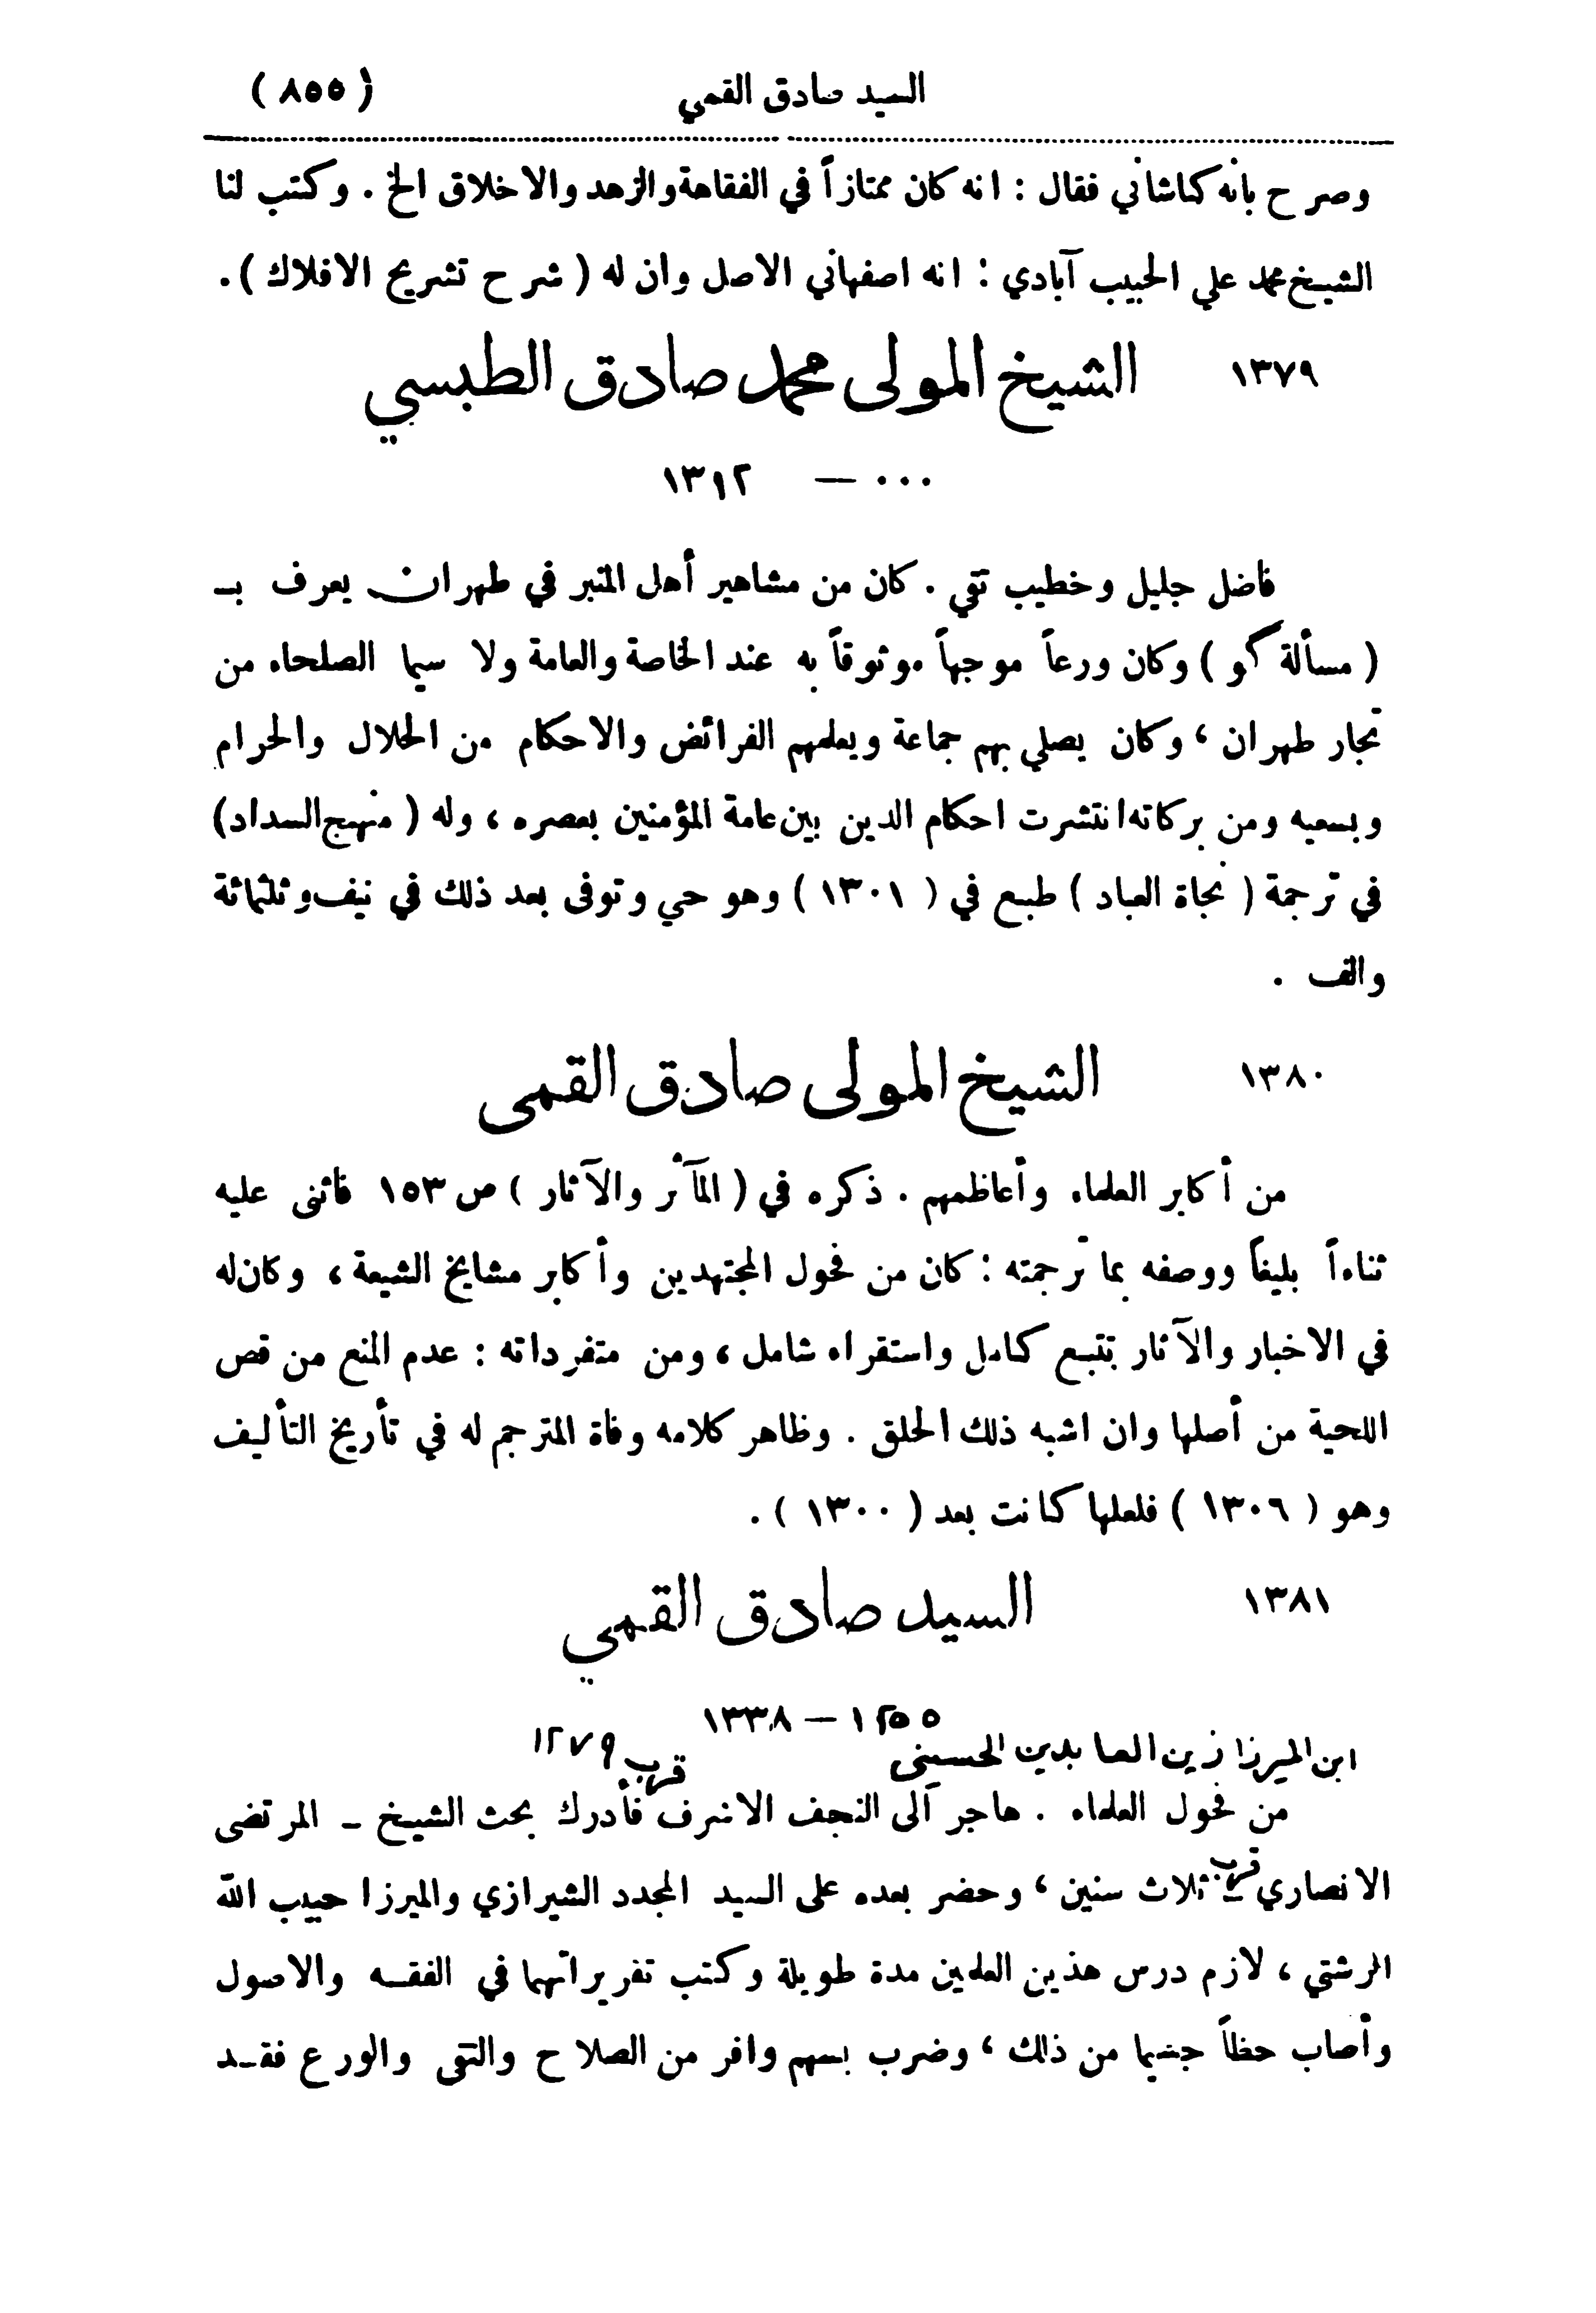 السيد صادق القمي
( ٨٥٥ )
وصرح بانه كاشاني فقال : انه كان ممتازاً في الفقاهة والزهد والاخلاق الخ . وكتب لنا
الشيخ محمد علي الحبيب آبادي : انه اصفهاني الاصل وان له ( شرح تشريح الافلاك ) .
١٣٧٩ الشيخ المولى محمد صادق الطبسي
٠٠٠ — ١٣١٢
فاضل جليل وخطيب تقي . كان من مشاهير أهل المنبر في طهران يعرف بـ
( مسألة گو ) وكان ورعاً موجهاً موثوقاً به عند الخاصة والعامة ولا سيما الصلحاء من
تجار طهران ، وكان يصلي بهم جماعة ويعلمهم الفرائض والاحكام من الحلال والحرام
وبسعيه ومن بركاته انتشرت احكام الدين بين عامة المؤمنين بعصره ، وله ( منهج السداد )
في ترجمة ( نجاة العباد ) طبع في ( ١٣٠١ ) وهو حي وتوفى بعد ذلك في نيف وثلثمائة
والف .
١٣٨٠ الشيخ المولى صادق القمى
من أكابر العلماء وأعاظمهم . ذكره في ( المآثر والآثار ) ص ١٥٣ فاثنى عليه
ثناءاً بليغاً ووصفه بما ترجمته : كان من فحول المجتهدين وأكابر مشايخ الشيعة ، وكان له
في الاخبار والآثار تتبع كامل واستقراء شامل ، ومن متفرداته : عدم المنع من قص
اللحية من أصلها وان اشبه ذلك الحلق . وظاهر كلامه وفاة المترجم له في تأريخ التأليف
وهو ( ١٣٠٦ ) فلعلها كانت بعد ( ١٣٠٠ ) .
١٣٨١ السيد صادق القمي
١٢٥٥ — ١٣٣٨
ابن الميرزا زين العابدين الحسيني
قرب ١٢٧٩
من فحول العلماء . هاجر الى النجف الاشرف فأدرك بحث الشيخ - المرتضى
الانصاري قرب ثلاث سنين ، وحضر بعده على السيد المجدد الشيرازي والميرزا حبيب الله
الرشتي ، لازم درس هذين العلمين مدة طويلة وكتب تقريراتهما في الفقه والاصول
وأصاب حظاً جسيما من ذلك ، وضرب بسهم وافر من الصلاح والتقى والورع فقد